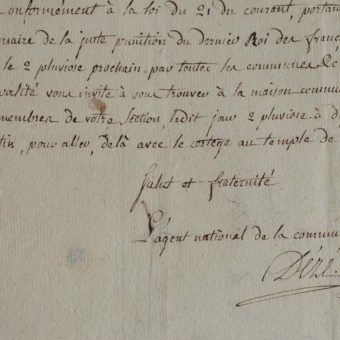 Conformément à la loi du 21 du courant, portant
de la juste punition du dernier Roi des franç
le 2 pluviose prochain par toutes les communes de
vous invite à vous trouver à la maison commu
membres de votre Section, ledit jour 2 pluviose à d
tin, pour aller, delà avec le cortège au temple de
Salut et fraternité
L'agent national de la commu